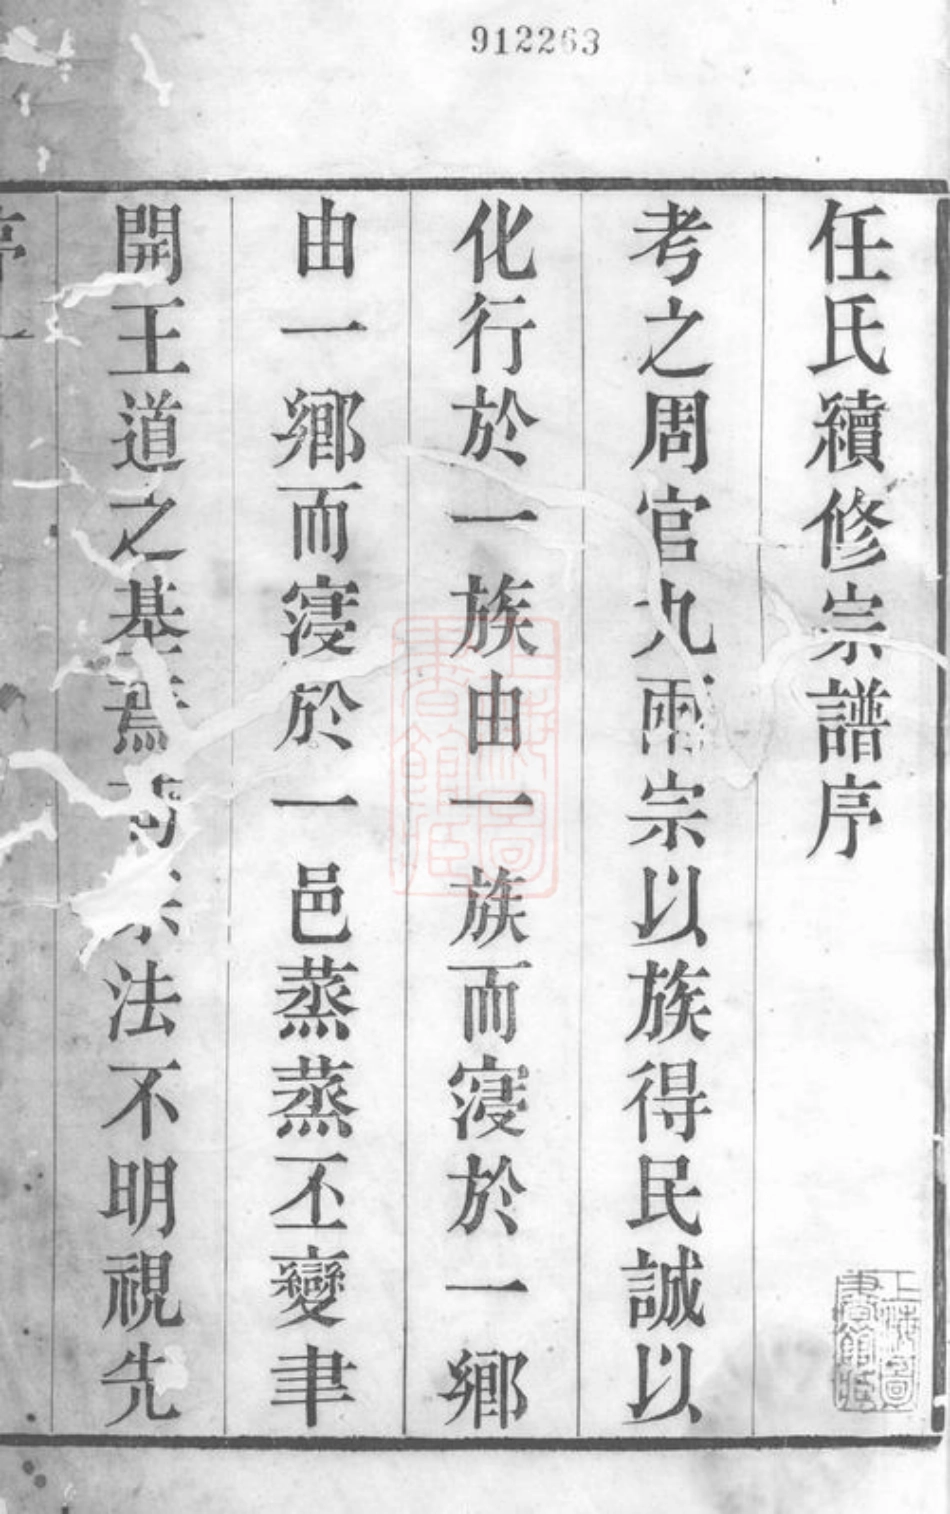 912263
任氏續修宗譜序
考之周官九兩宗以族得民誠以
化行於一族由一族而寖於一鄉
由一鄉而寖於一邑蒸蒸丕變聿
開王道之基焉 法不明視先
序一
上海圖書館藏
上海圖書館藏